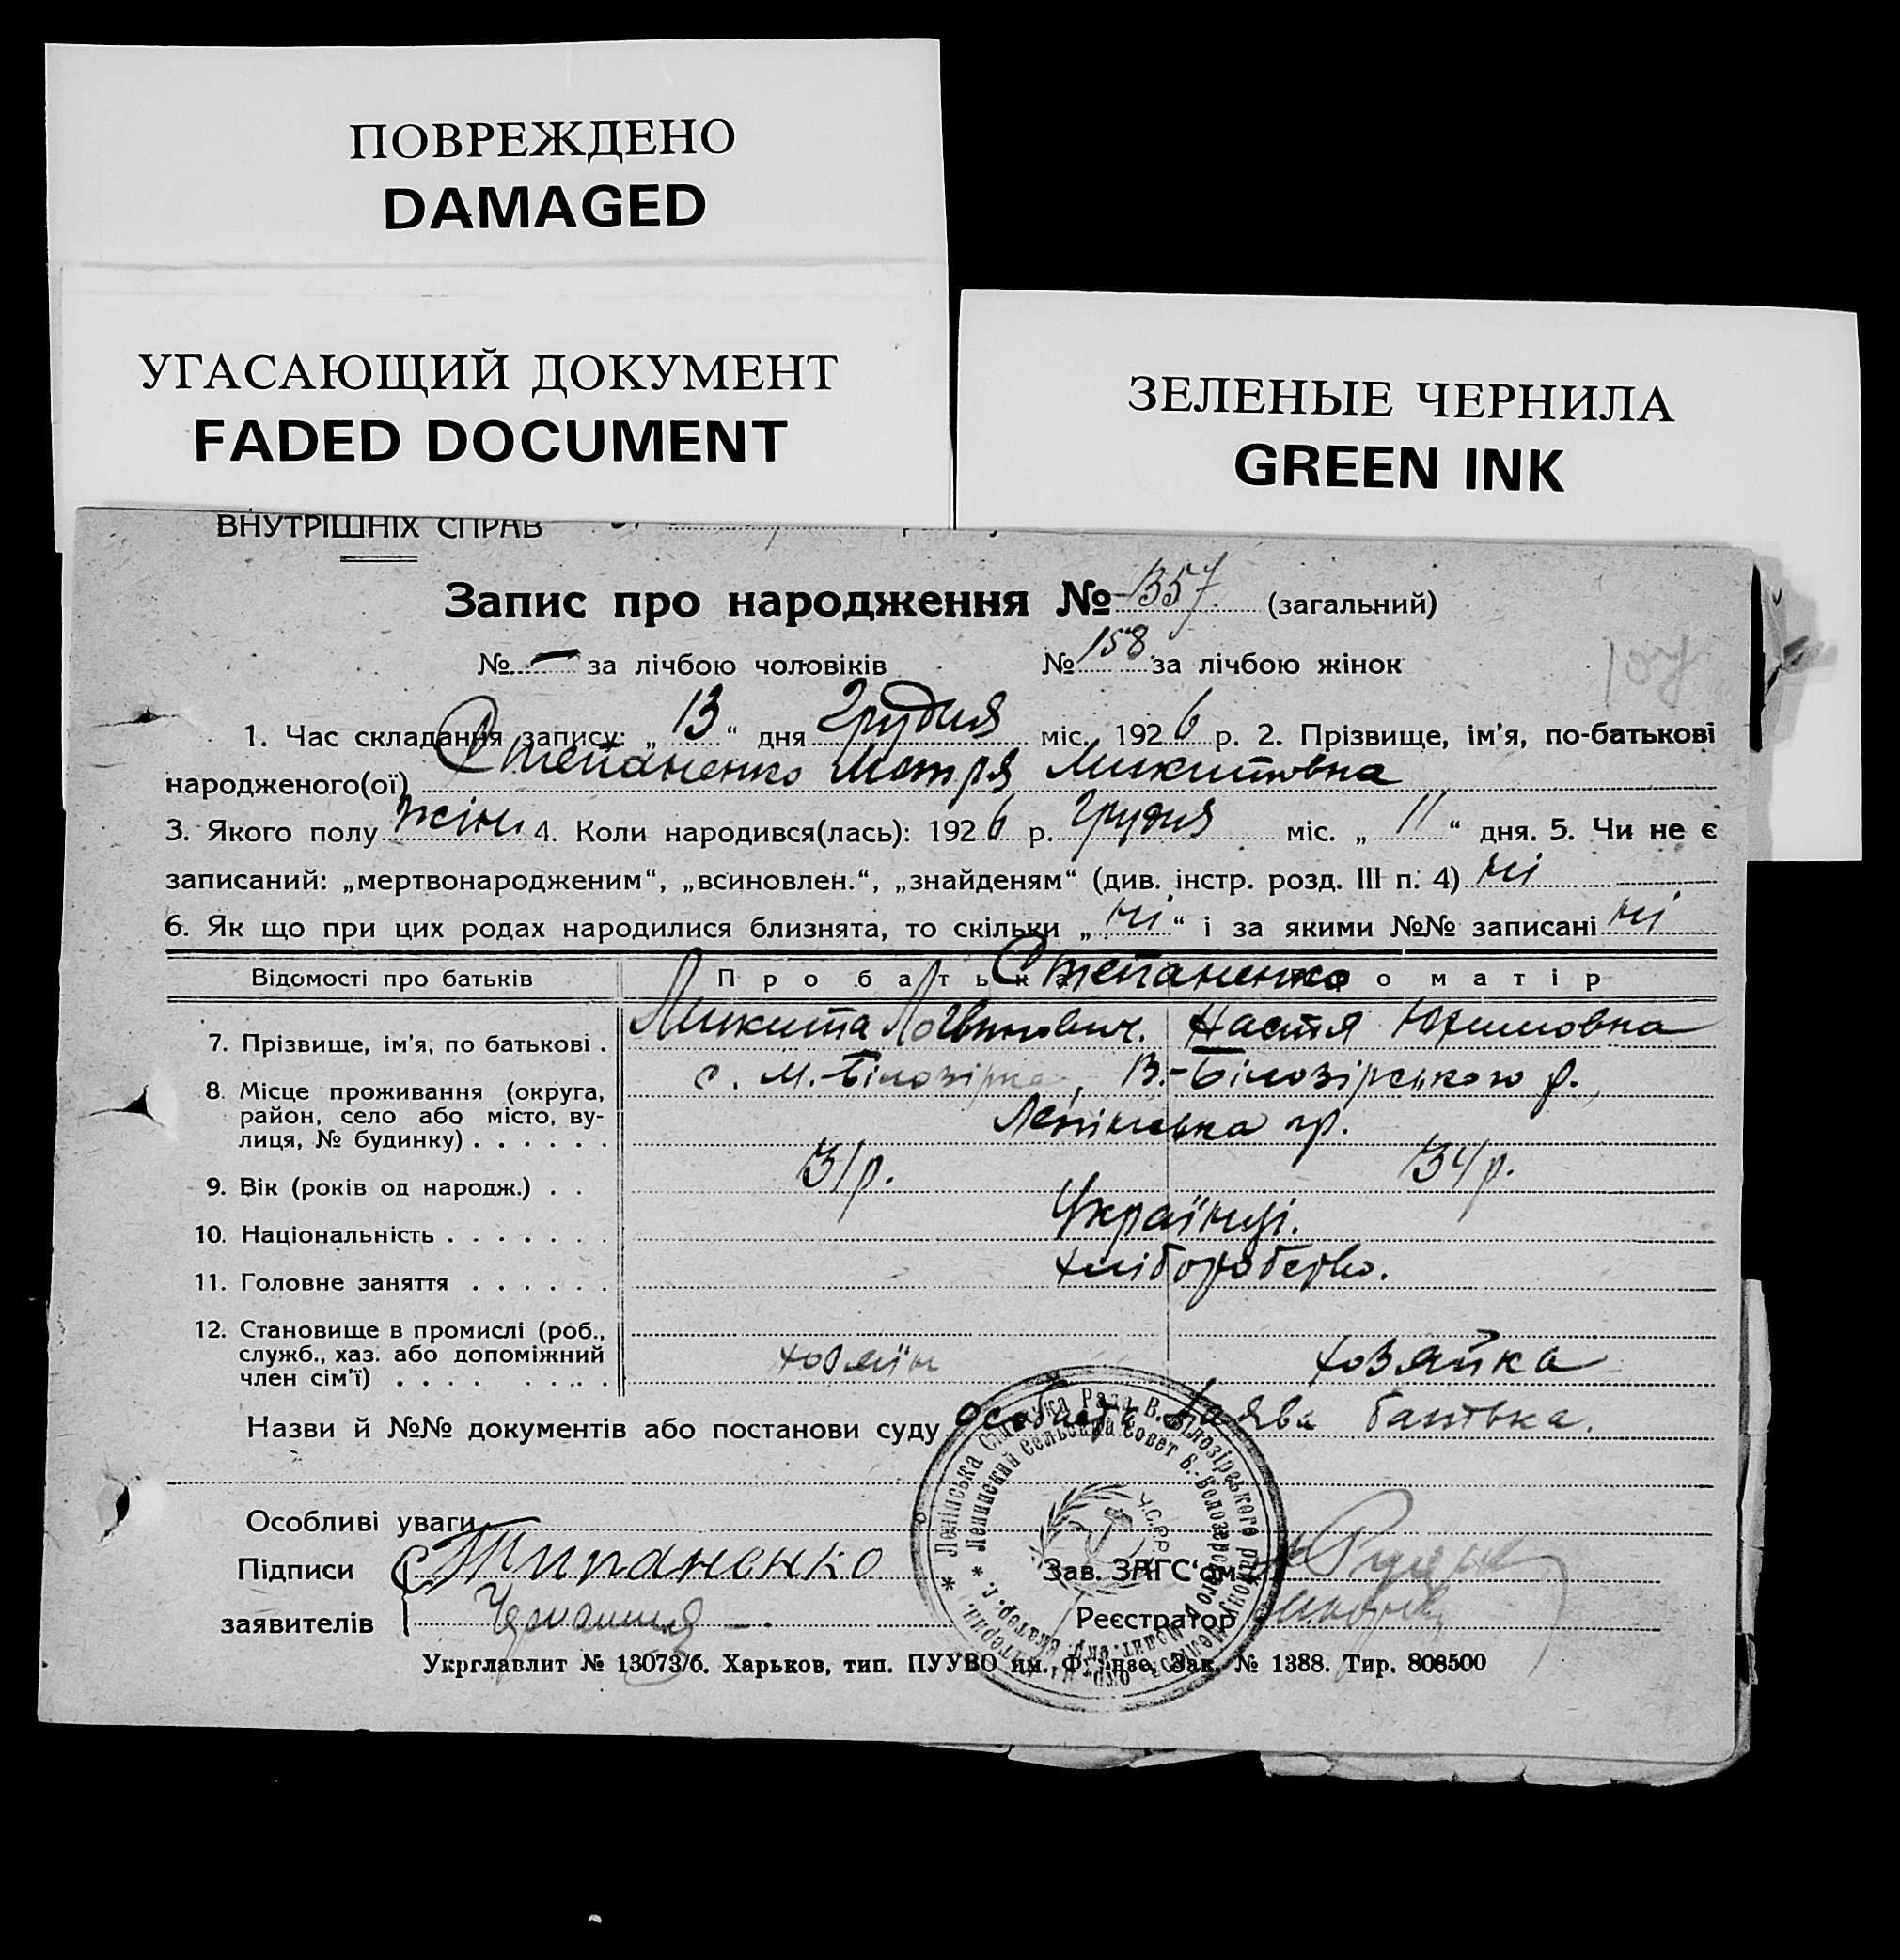 ПОВРЕЖДЕНО
DAMAGED
УГАСАЮЩИЙ ДОКУМЕНТ
FADED DOCUMENT
ЗЕЛЕНЫЕ ЧЕРНИЛА
GREEN INK
ВНУТРІШНІХ СПРАВ
Запис про народження № 357 (загальний)
№ — за лічбою чоловіків № 158 за лічбою жінок
107
1. Час складання запису: „ 13 “ дня Грудня міс. 1926 р. 2. Прізвище, ім'я, по-батькові
народженого(ої) Степаненко Мотря Микитовна
3. Якого полу жіни 4. Коли народився(лась): 1926 р. Грудня міс. „ 11 “ дня. 5. Чи не є
записаний: „мертвонародженим“, „всиновлен.“, „знайденям“ (див. інстр. розд. III п. 4) ні
6. Як що при цих родах народилися близнята, то скільки „ ні “ і за якими №№ записані ні
Відомості про батьків Про батька Степаненко Про матір
7. Прізвище, ім'я, по батькові . Микита Логвинович. Настя Юхимовна
8. Місце проживання (округа, район, село або місто, вулиця, № будинку) . . . . . . с. М. Білозірка, В.-Білозірського р.,
Ленінська гр.
9. Вік (років од народж.) . . 31 р. 34 р.
10. Національність . . . . . . . Українці.
11. Головне заняття . . . . . . хліборобство.
12. Становище в промислі (роб.,
служб., хаз. або допоміжний
член сім'ї) . . . . . . . . хозяїн хозяйка
Назви й №№ документів або постанови суду особиста заява батька.
Особливі уваги
Підписи Стипаненко Зав. ЗАГС'ом
заявителів Реєстратор
* Ленінська Сільська Рада В. Білозірського району Меліт. окр. Катерин.
* Ленинский Сельский Совет Б.-Белозерского р. Мелит. окр. Екатер. г.
У.С.Р.Р.
Укрглавлит № 13073/6. Харьков, тип. ПУУВО им. Фрунзе. Зак. № 1388. Тир. 808500